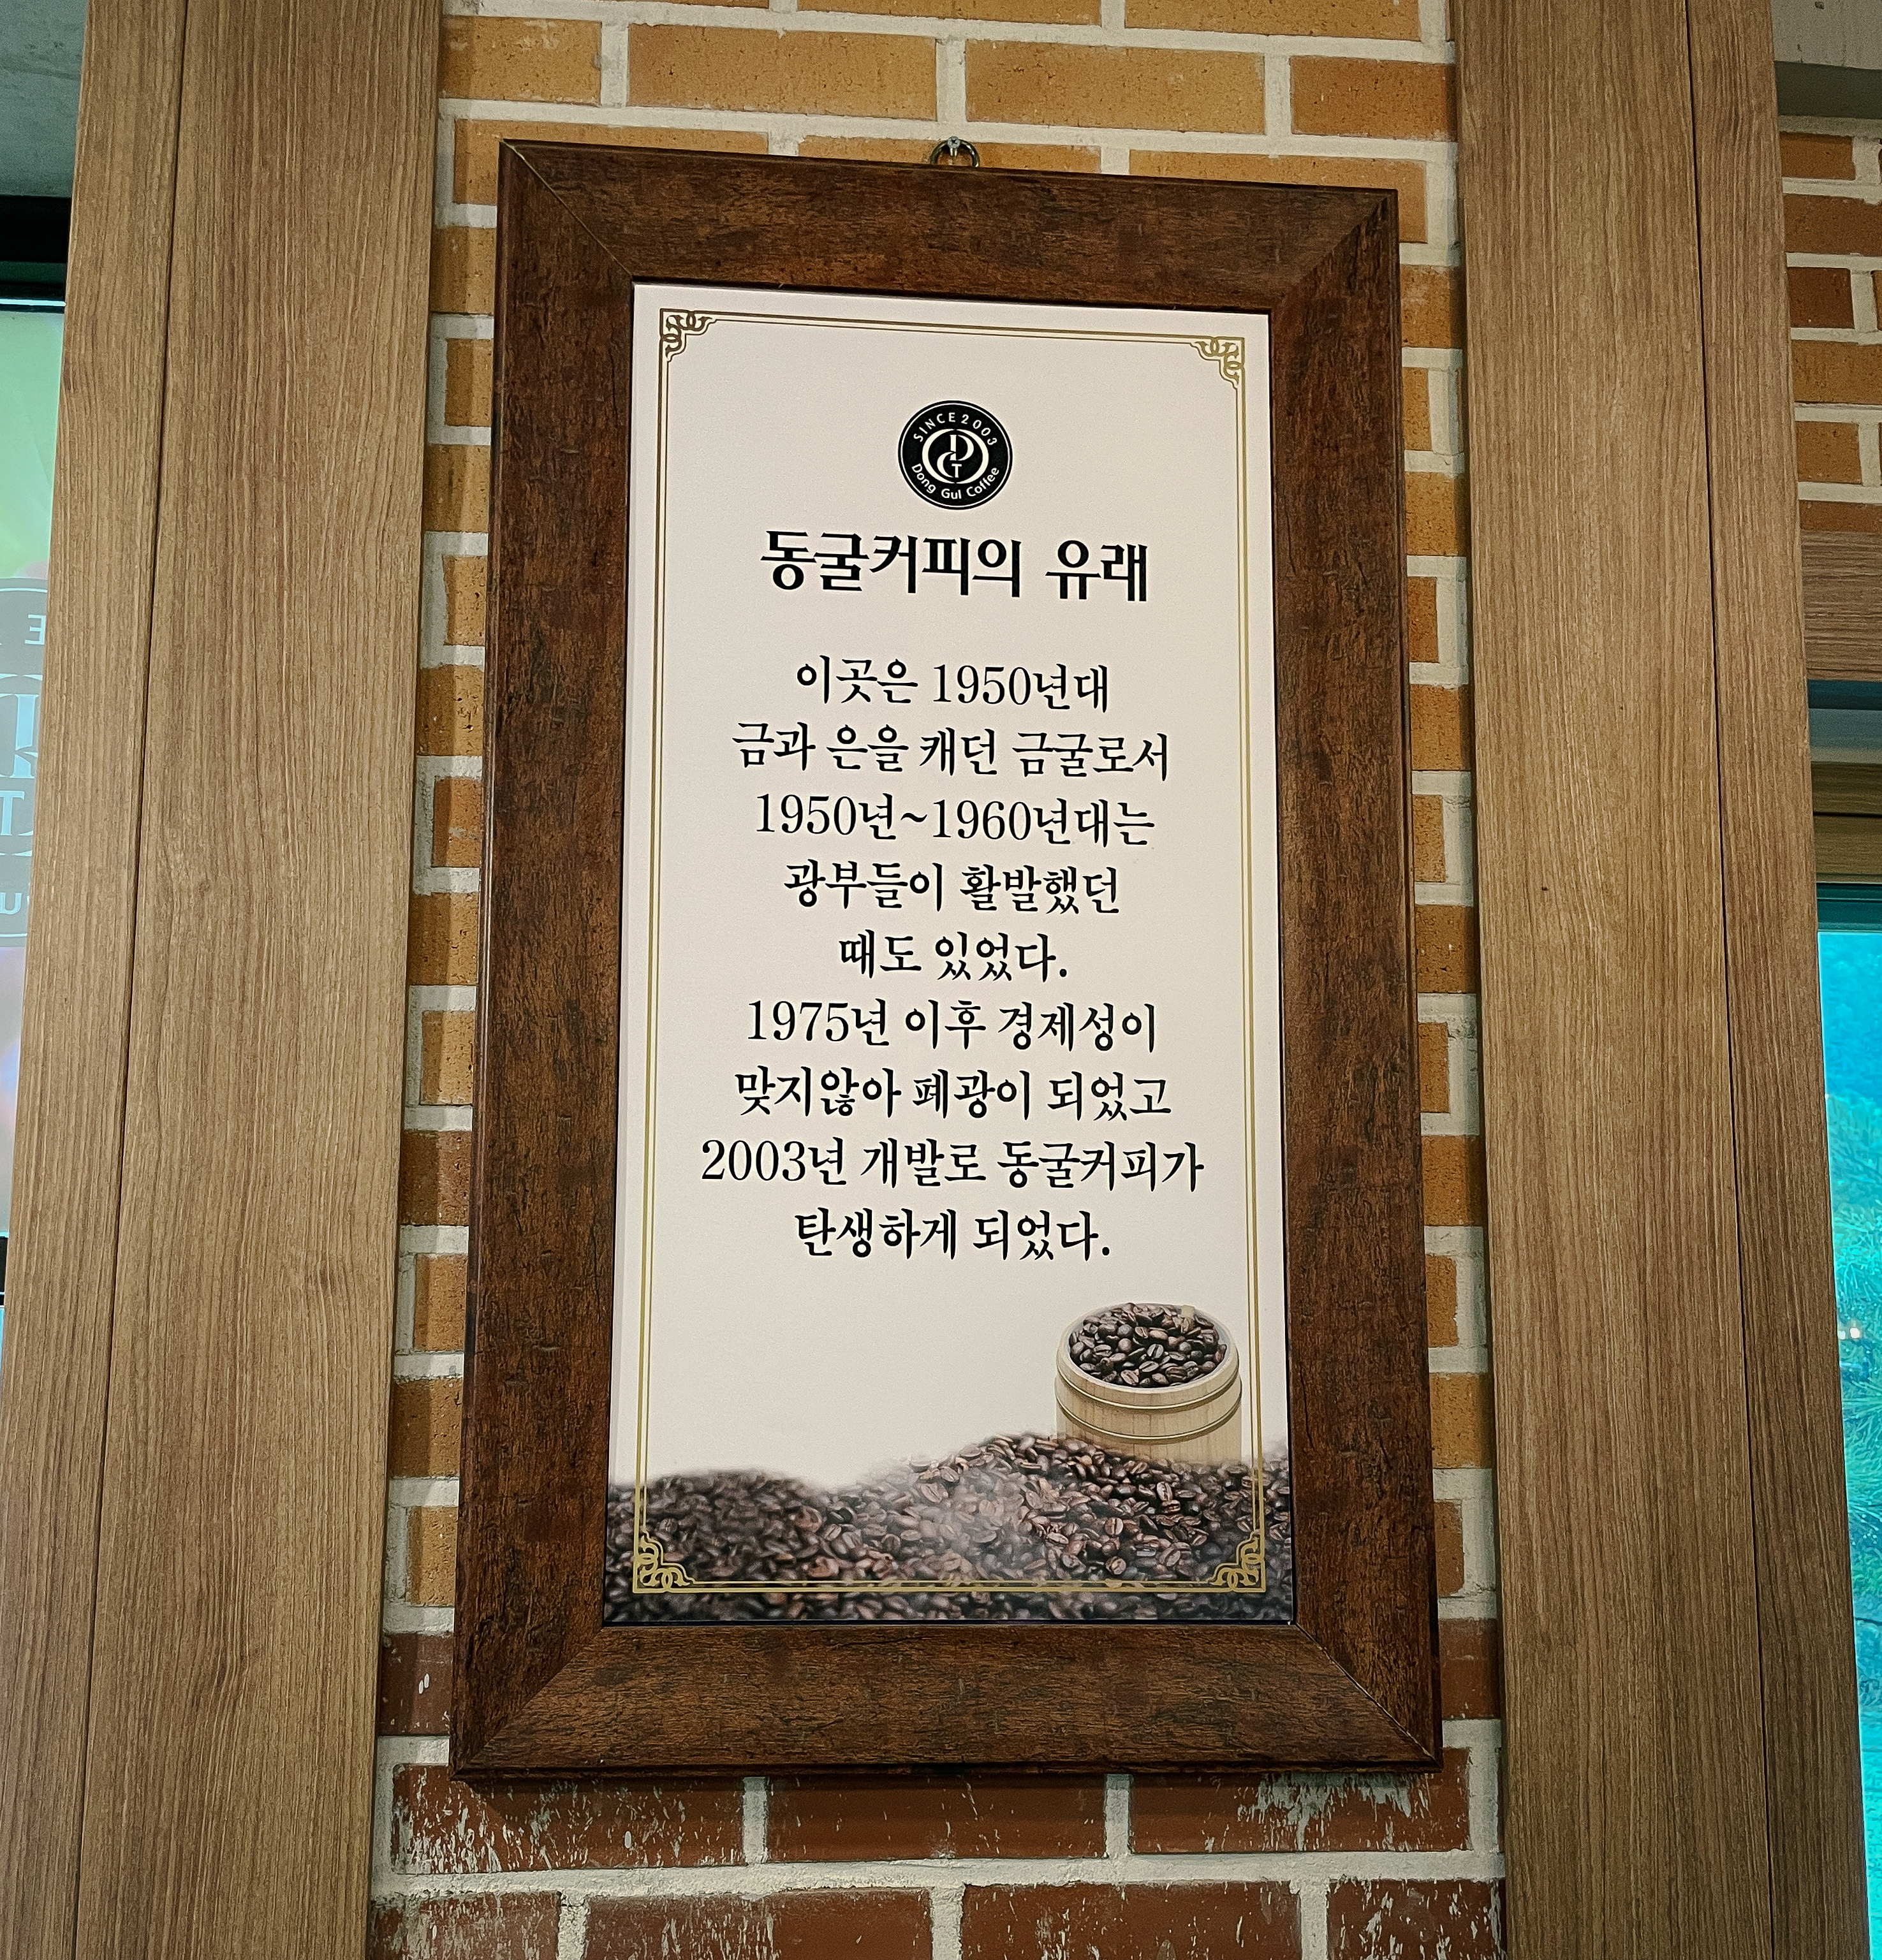 SINCE 2003
DCT
Dong Gul Coffee
동굴커피의 유래
이곳은 1950년대
금과 은을 캐던 금굴로서
1950년~1960년대는
광부들이 활발했던
때도 있었다.
1975년 이후 경제성이
맞지않아 폐광이 되었고
2003년 개발로 동굴커피가
탄생하게 되었다.